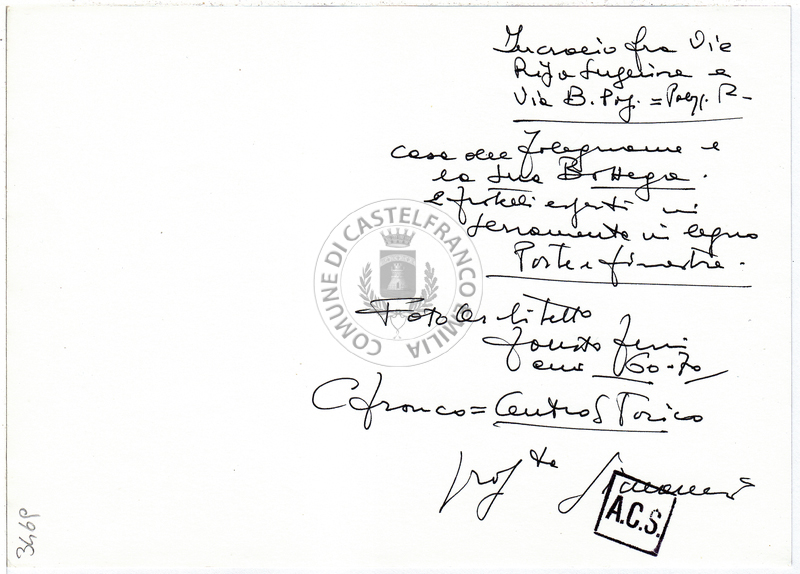 Incrocio fra Via
e
Via B. Pag. =
casa del falegname e
la sua Bottega.
2 fratelli esperti in
serramenta in legno
Porte e finestre.
Foto Architetto
Fausto Ferri
anni 60-70
Cfranco = Centro STorico
prof
A.C.S.
COMUNE DI CASTELFRANCO EMILIA
3469